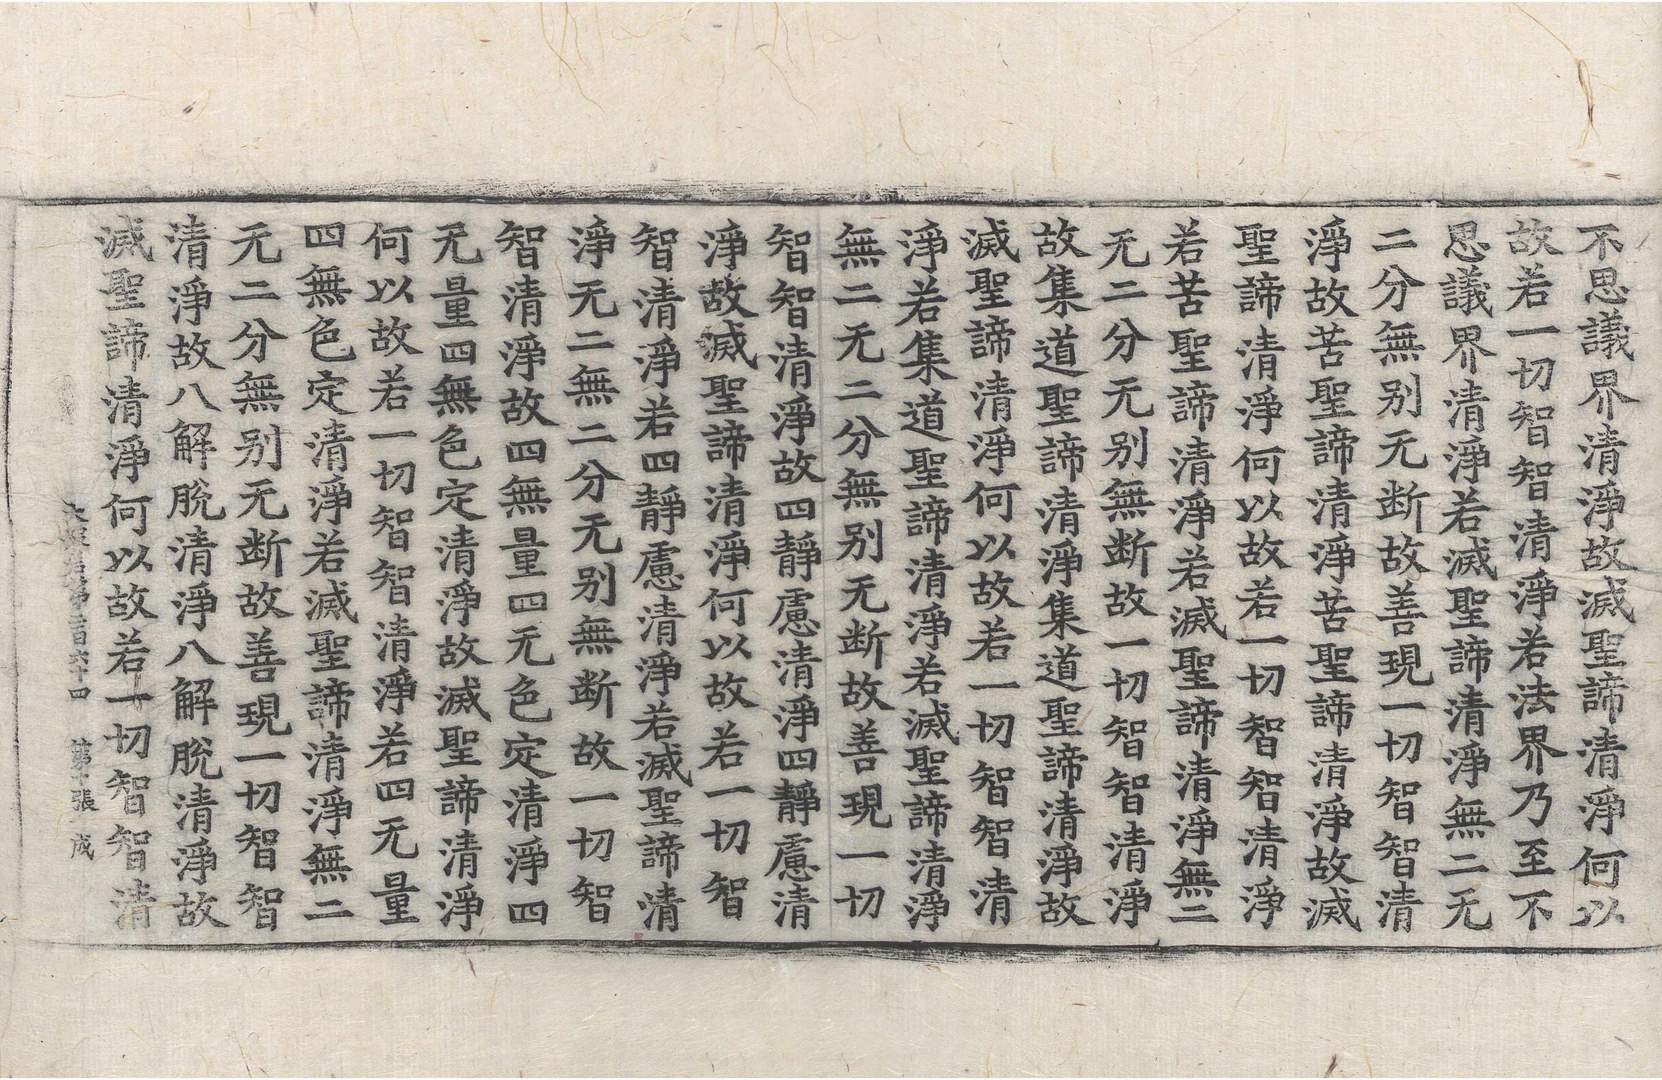 不思議界清淨故滅聖諦清淨何以
故若一切智智清淨若法界乃至不
思議界清淨若滅聖諦清淨無二无
二分無别无断故善現一切智智清
淨故苦聖諦清淨苦聖諦清淨故滅
聖諦清淨何以故若一切智智清淨
若苦聖諦清淨若滅聖諦清淨無二
无二分无别無断故一切智智清淨
故集道聖諦清淨集道聖諦清淨故
滅聖諦清淨何以故若一切智智清
淨若集道聖諦清淨若滅聖諦清淨
無二无二分無别无断故善現一切
智智清淨故四靜慮清淨四靜慮清
淨故滅聖諦清淨何以故若一切智
智清淨若四靜慮清淨若滅聖諦清
淨无二無二分无别無断故一切智
智清淨故四無量四无色定清淨四
无量四無色定清淨故滅聖諦清淨
何以故若一切智智清淨若四无量
四無色定清淨若滅聖諦清淨無二
无二分無别无断故善現一切智智
清淨故八解脫清淨八解脫清淨故
滅聖諦清淨何以故若一切智智清
大般若第二百六十四 第十張 成